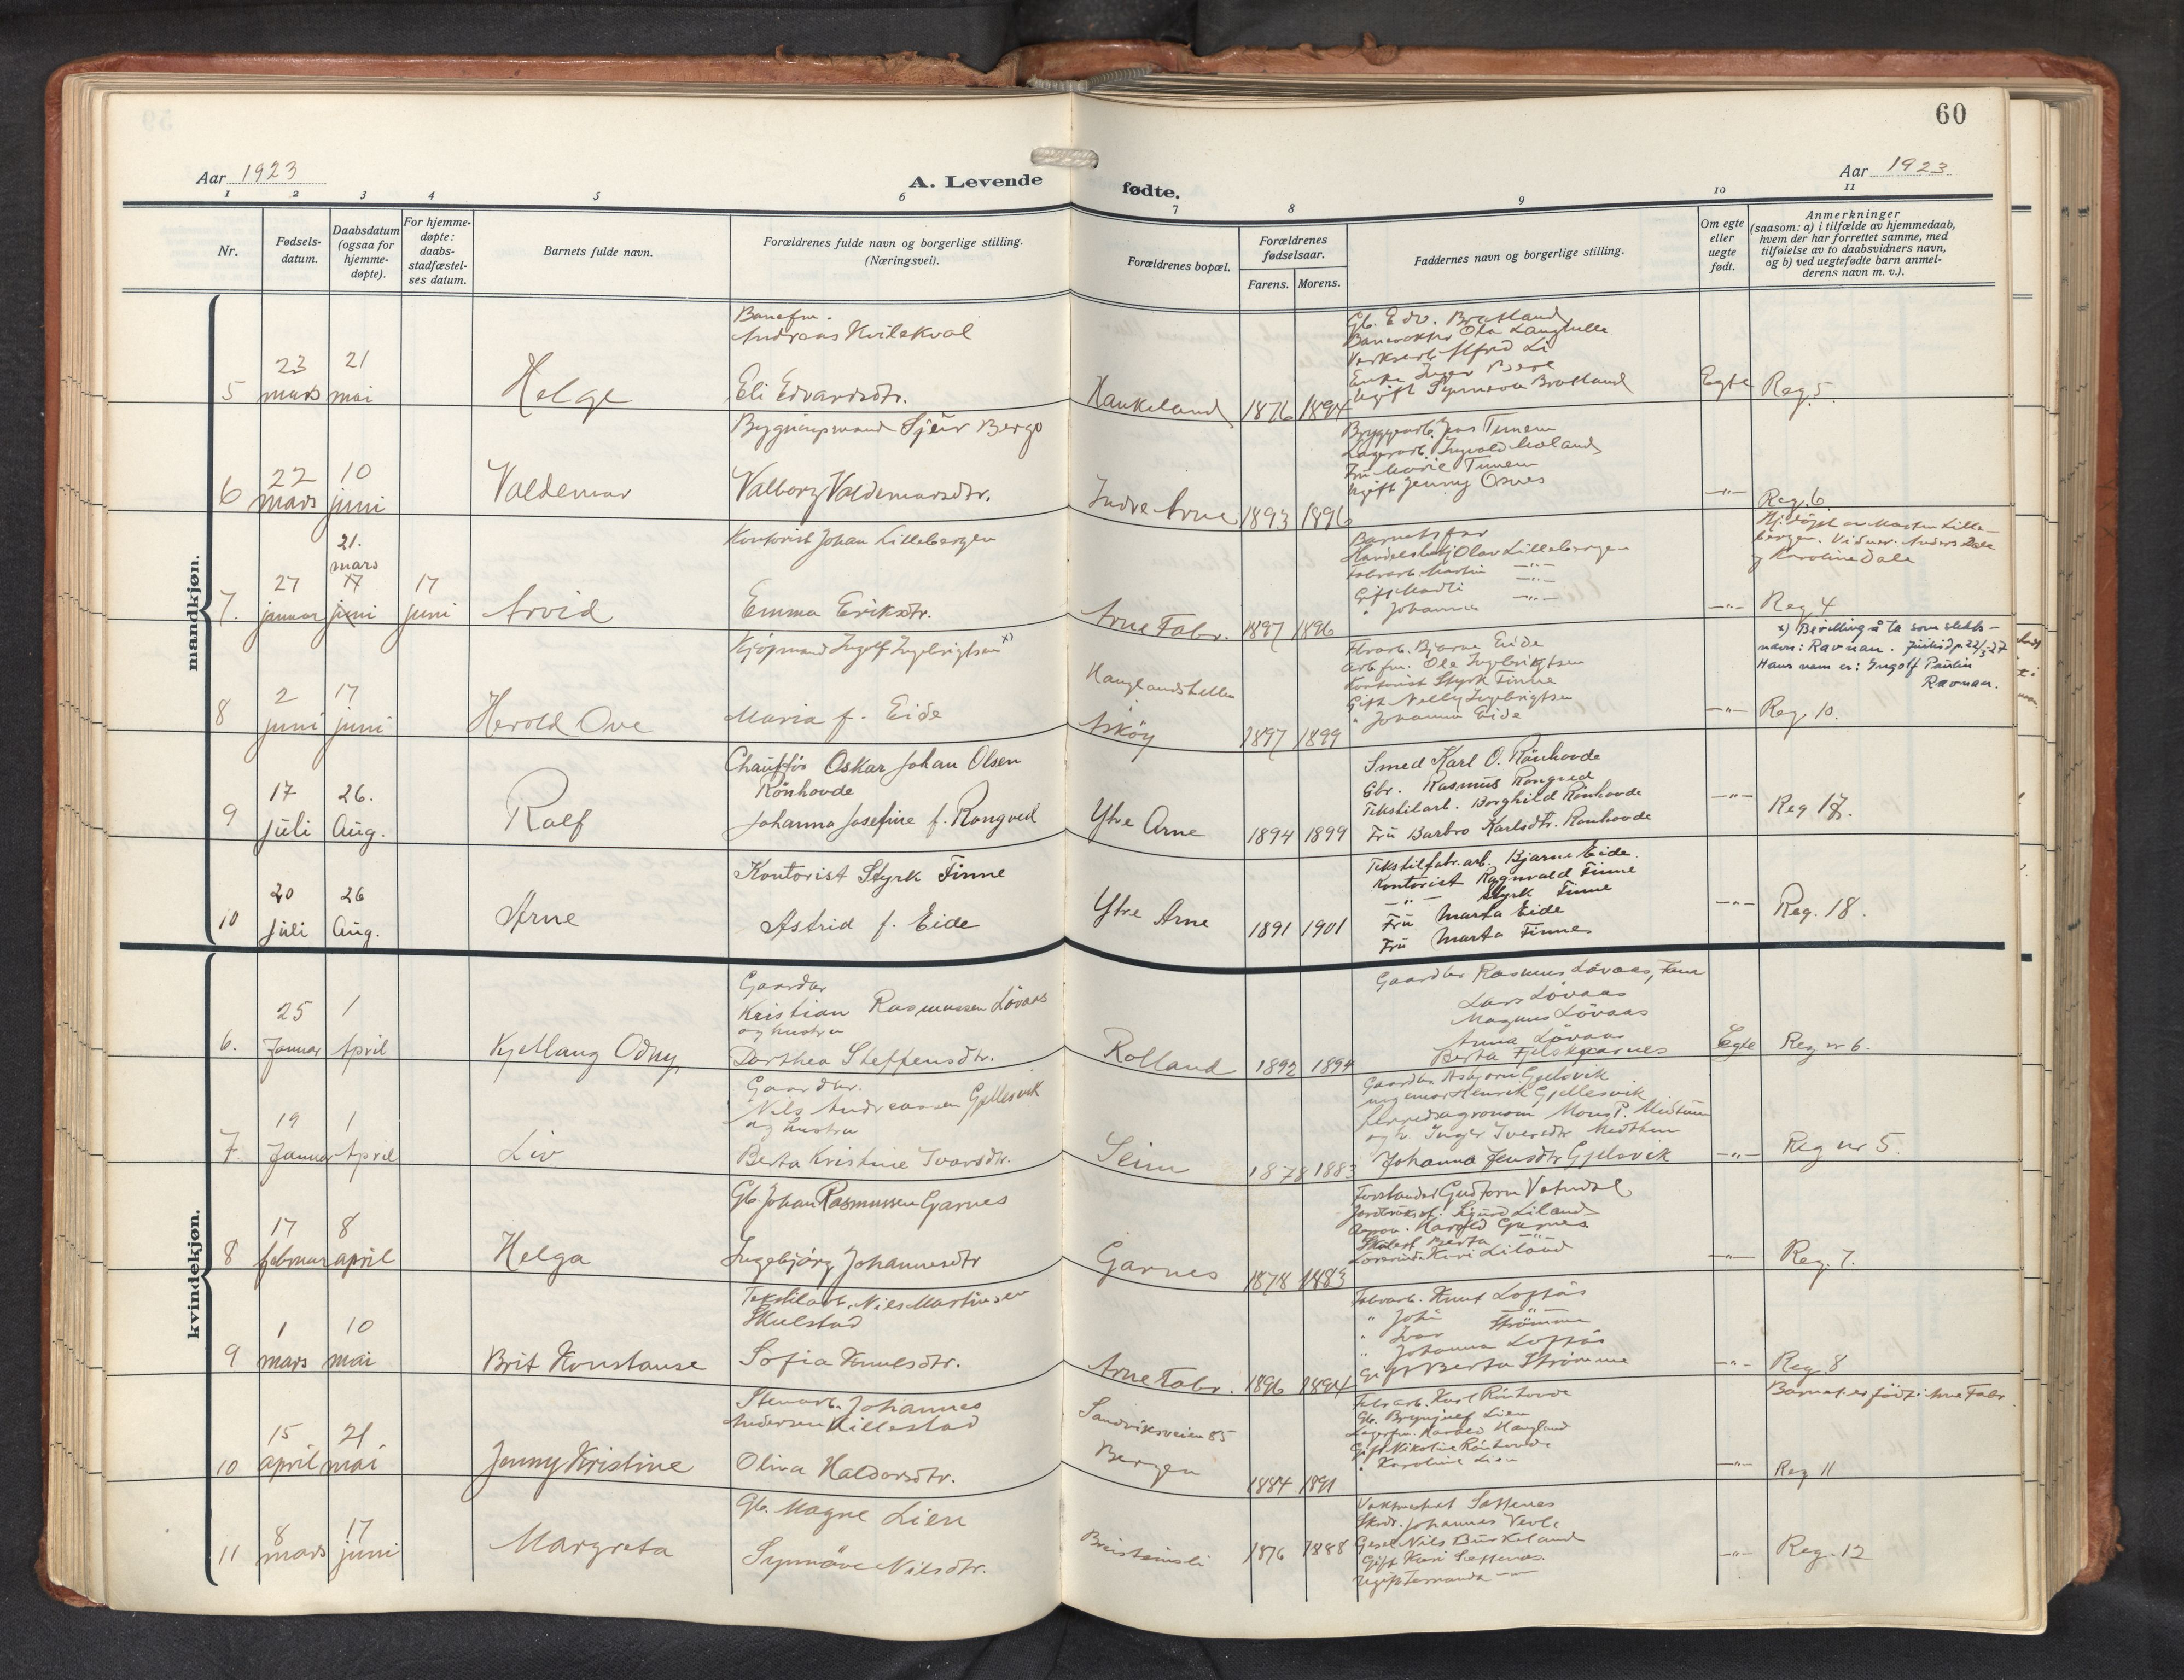 60
Aar 1923
A. Levende fødte.
Aar 1923
1 2 3 4 5 6 7 8 9 10 11
Nr.
Fødsels-
datum.
Daabsdatum
(ogsaa for
hjemme-
døpte).
For hjemme-
døpte:
daabs-
stadfæstel-
ses datum.
Barnets fulde navn.
Forældrenes fulde navn og borgerlige stilling.
(Næringsvei).
Forældrenes bopæl.
Forældrenes
fødselsaar.
Farens. Morens.
Faddernes navn og borgerlige stilling.
Om egte
eller
uegte
født.
Anmerkninger
(saasom: a) i tilfælde av hjemmedaab,
hvem der har forrettet samme, med
tilføielse av to daabsvidners navn,
og b) ved uegtefødte barn anmel-
derens navn m. v.).
mandkjøn.
5
23
mars
21
mai
Helge
Banefm.
Andreas Kvilekval
Eli Edvardsdtr.
Haukeland
1876 1894
Gb. Edv. Bratland
Banevokter Ola Langhelle
Verksarb. Alfred Li
Ugift Synneva Bratland
Egte
Reg. 5.
6
22
mars
10
juni
Valdemar
Sjur Berge
Valborg Valdemarsdtr.
Indre Arne
1893 1896
Bryggearb. Jens Tunem
Lagerarb. Ingvald Moland
Fru Marie Tunem
Ugift Jenny Osnes
—"—
Reg. 6
7.
27
januar
21.
mars
17
juni
17
juni
Arvid
Kontorist Johan Lillebergen
Emma Eriksdtr.
Arne Fabr.
1897 1896
Barnets far
Olav Lillebergen
Fabrarb. Martin —"—
Gift Madli —"—
" Johanna —"—
—"—
Hj. døpt av Marten Lille-
bergen. Vidner: Anders Dale
og Karoline Dale
Reg 4
8
2
juni
17
juni
Herold Ove
Kjøpmand Ingolf Ingebrigtsen x)
Maria f. Eide
Hanglandshellen
Askøy
1897 1899
Fbrarb. Bjarne Eide
Arb.fm. Ola Ingebrigtsen
Kontorist Styrk Finne
Gift Nelly Ingebrigtsen
" Johanna Eide
—"—
x) Bevilling å ta som slekts-
navn: Ravnan. Justisdp. 22/3-27
Hans navn er: Ingolf Paulin
Ravnan.
Reg. 10.
9
17
juli
26.
Aug.
Ralf
Chauffør Oskar Johan Olsen
Rönhovde
Johanna Josefine f. Rongved
Ytre Arne
1894 1899
Smed Karl O. Rönhovde
Gbr. Rasmus Rongved
Tekstilarb. Borghild Rönhovde
Frü Barbro Karlsdtr. Rönhovde
—"—
Reg 17.
10
20
juli
26
Aug.
Arne
Kontorist Styrk Finne
Astrid f. Eide
Ytre Arne
1891 1901
Tekstilfabr. arb. Bjarne Eide.
Kontorist Ragnvald Finne
—"— Styrk Finne
Frü Marta Eide
Frü Marta Finne
—"—
Reg. 18.
kvindekjøn.
6.
25
Januar
1
April
Kjellaug Odny
Gaardbr
Kristian Rasmussen Lövaas
og hustru
Dorthea Steffensdtr.
Rolland
1892 1894
Gaardbr Rasmus Lövaas, Fana
Lars Lövaas
Magnus Lövaas
Anna Lövaas
Berta Fjelskaarnes
Egte
Reg nr 6.
7
19
Januar
1
April
Liv
Gaardbr.
Nils Andreassen Gjellesvik
og hustru
Berta Kristine Ivarsdtr.
Seim
1878 1883
Gaardbr. Asbjörn Gjelsvik
Henrik Gjellesvik
Mons P. Midttun
Inger Iversdtr. Midttun
Johanna Jensdtr Gjelsvik
—"—
Reg nr 5.
8
17
februar
8
april
Helga
Gb. Johan Rasmussen Garnes
Ingebjörg Johannesdtr
Garnes
1878 1883
Forstander Guttorm Vatndal
Sigurd Liland
Agron. Harald Garnes
Berta —"—
Lærerinde Kari Liland
—"—
Reg. 7.
9
1
mars
10
mai
Brit Konstanse
Tekstilarb. Nils Martinsen
Skulstad
Sofia Knutsdtr.
Arne Fabr.
1896 1894
Fabrarb. Knut Loftås
" John —"—
" Ivar Strömme
" Johanna Loftås
Gift Berta Strömme
—"—
Reg. 8
10
15
april
21
mai
Jenny Kristine
Stenarb. Johannes
Andersen Killestad
Oliva Haldorsdtr.
Sandviksveien 85
Bergen
1884 1891
Fabrarb. Karl Rönhovde
Gb. Brynjulf Lien
Lagerfm. Harald Haugland
Gift Nikoline Rönhovde
" Karoline Lien
—"—
Barnet er født i Arne Fabr.
Reg 11
11
8
mars
17
juni
Margreta
Gb. Magne Lien
Synnöve Nilsdtr.
Breisteinsli
1876 1888
Vaktmester Settenes
Skrdr. Johannes Vevle
Gesel Nils Birkeland
Gift Kari Settenes
Ugift Fernanda —"—
—"—
Reg. 12